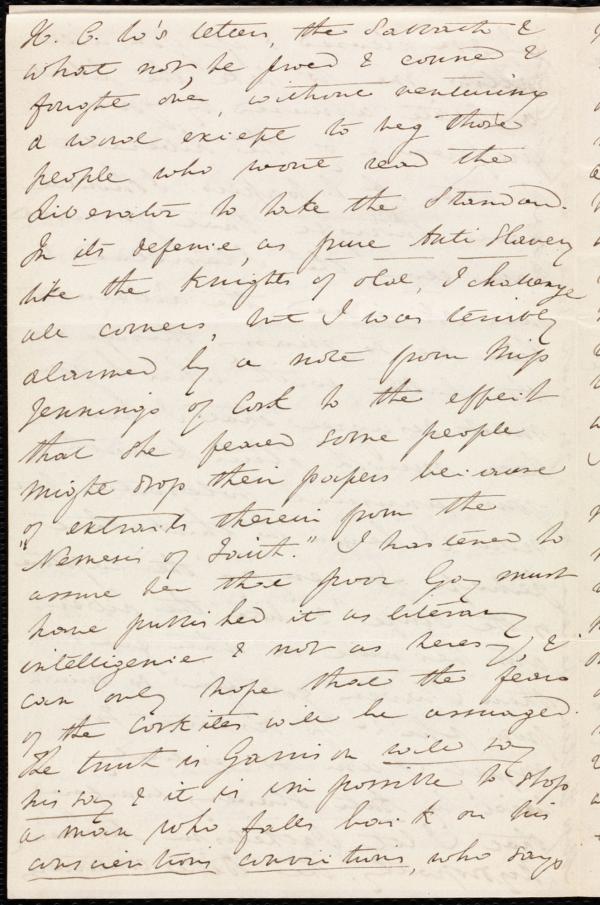 H. C. W's letters, the Sabbath &
what not, be pro'd & conned &
fought over, without venturing
a word except to beg those
people who wont read the
Liberator to take the Standard.
In its defence, as pure Anti Slavery
like the Knights of old, I challenge
all comers, but I was terribly
alarmed by a note from Miss
Jennings of Cork to the effect
that she feared some people
might drop their papers because
of extracts therein from the
"Nemesis of Faith." I hastened to
assure her that poor Gay must
have published it as literary
intelligence & not as heresy, &
can only hope that the fears
of the Corkites will be assuaged.
The truth is Garrison will say
his say & it is impossible to stop
a man who falls back on his
conscientious convictions, who says